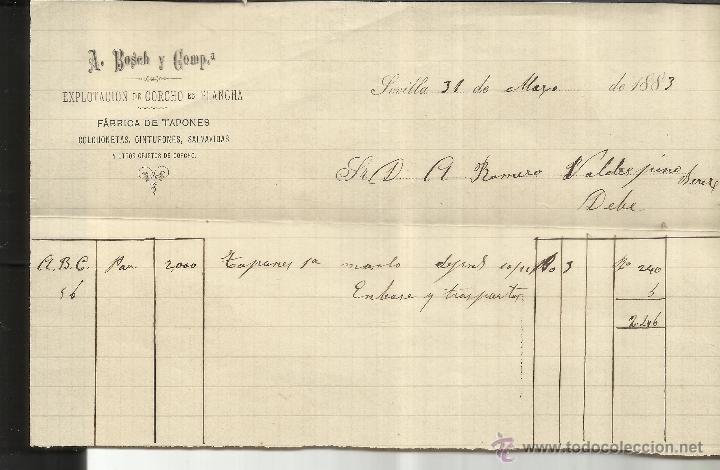 A. Bosch y Comp.ª
EXPLOTACION DE CORCHO EN PLANCHA
FÁBRICA DE TAPONES
COLCHONETAS, CINTURONES, SALVAVIDAS
Y OTROS OBJETOS DE CORCHO.
Sevilla 31 de Mayo de 1883
Sr D. A Romero Valdespino Jerez
Debe
A.B.C. 2,000 Tapones 1a 240
56 Enbase y trasporte 6
2.246
www.todocoleccion.net